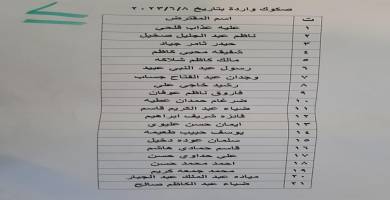 صكوك واردة بتاريخ ٢٠٢٣/٦/٨
ت اسم المقترض
١ علية عذاب فلحي
٢ ناظم عبد الجليل صخيل
٣ حيدر ثامر جياد
٤ شفيقه محيي كاظم
٥ مالك كاظم شلاكه
٦ رسول عبد النبي عبيد
٧ وجدان عبد الفتاح حساب
٨ رشيد خاجي علي
٩ فاروق ناظم عوفان
١٠ ضرغام حمدان عطيه
١١ ضياء عبد الكريم قاسم
١٢ فائزه شريف ابراهيم
١٣ ايمان حسن عليوي
١٤ يوسف حبيب طعيمه
١٥ سلمان عوده دخيل
١٦ قاسم حمادي هاشم
١٧ علي حداوي حسن
١٨ احمد محمد حسن
١٩ محمد جمعه كريم
٢٠ مياده عبد الملك عبد الجبار
٢١ ضياء عبد الكاظم صالح